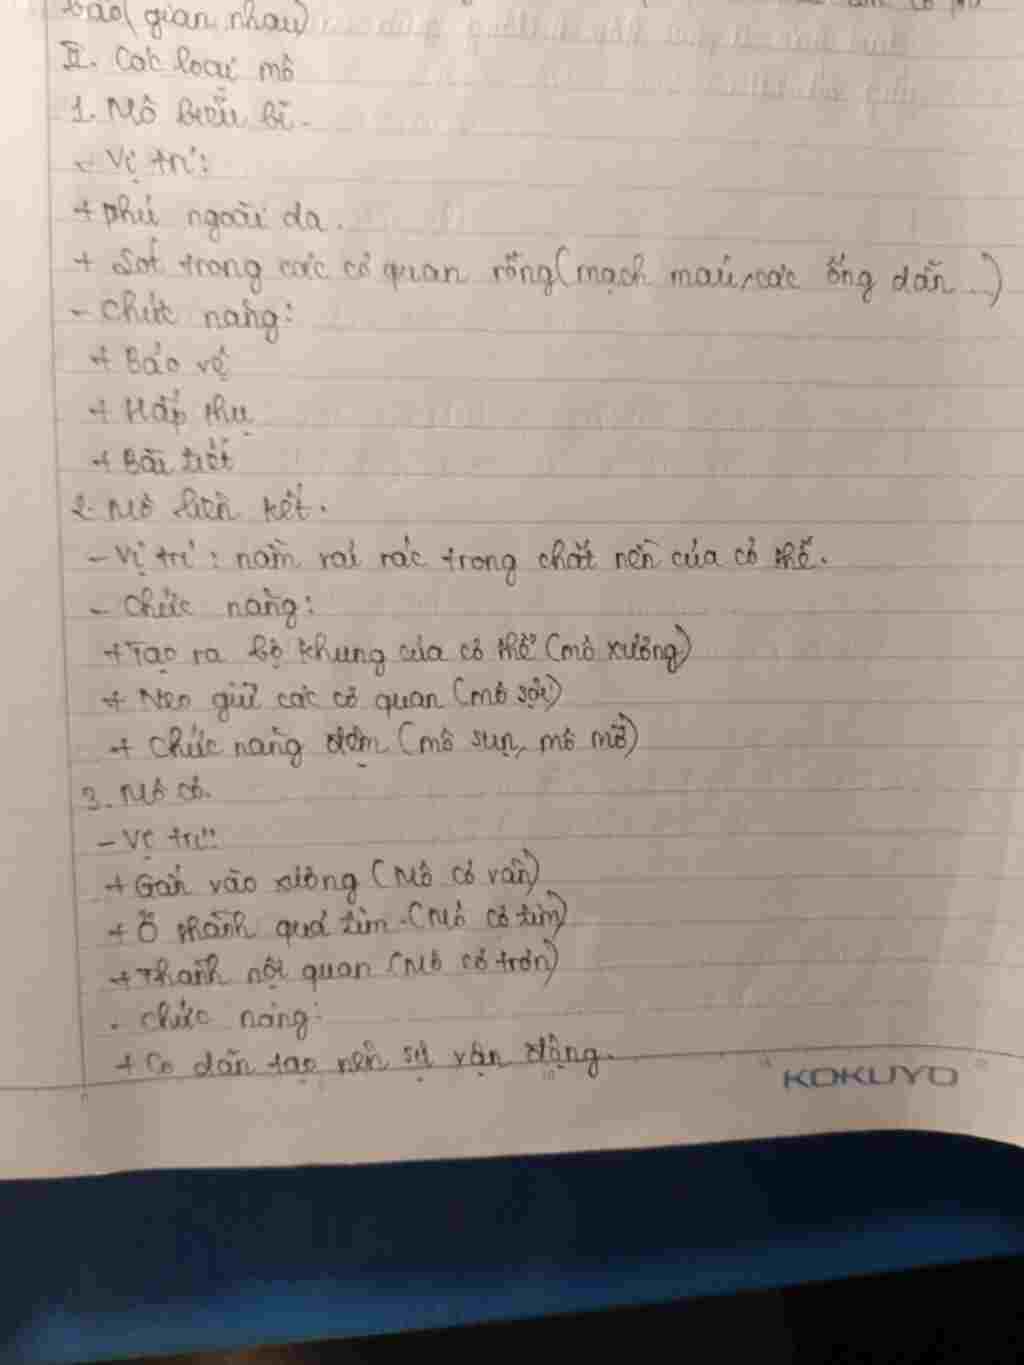 bào(gian nhau)
II. Các loại mô
1. Mô biểu bì.
- Vị trí:
+ phủ ngoài da.
+ Sót trong các cơ quan rỗng(mạch máu, các ống dẫn...)
- Chức năng:
+ Bảo vệ
+ Hấp thụ
+ Bài tiết
2. Mô liên kết.
- Vị trí: nằm rải rác trong chất nền của cơ thể.
- Chức năng:
+ Tạo ra bộ khung của cơ thể (mô xương)
+ Neo giữ các cơ quan (mô sợi)
+ Chức năng đệm (mô sụn, mô mỡ)
3. Mô cơ.
- Vị trí:
+ Gắn vào xương (Mô cơ vân)
+ Ở thành quả tim. (Mô cơ tim)
+ Thành nội quan (Mô cơ trơn)
- chức năng:
+ Co dãn tạo nên sự vận động.
KOKUYO